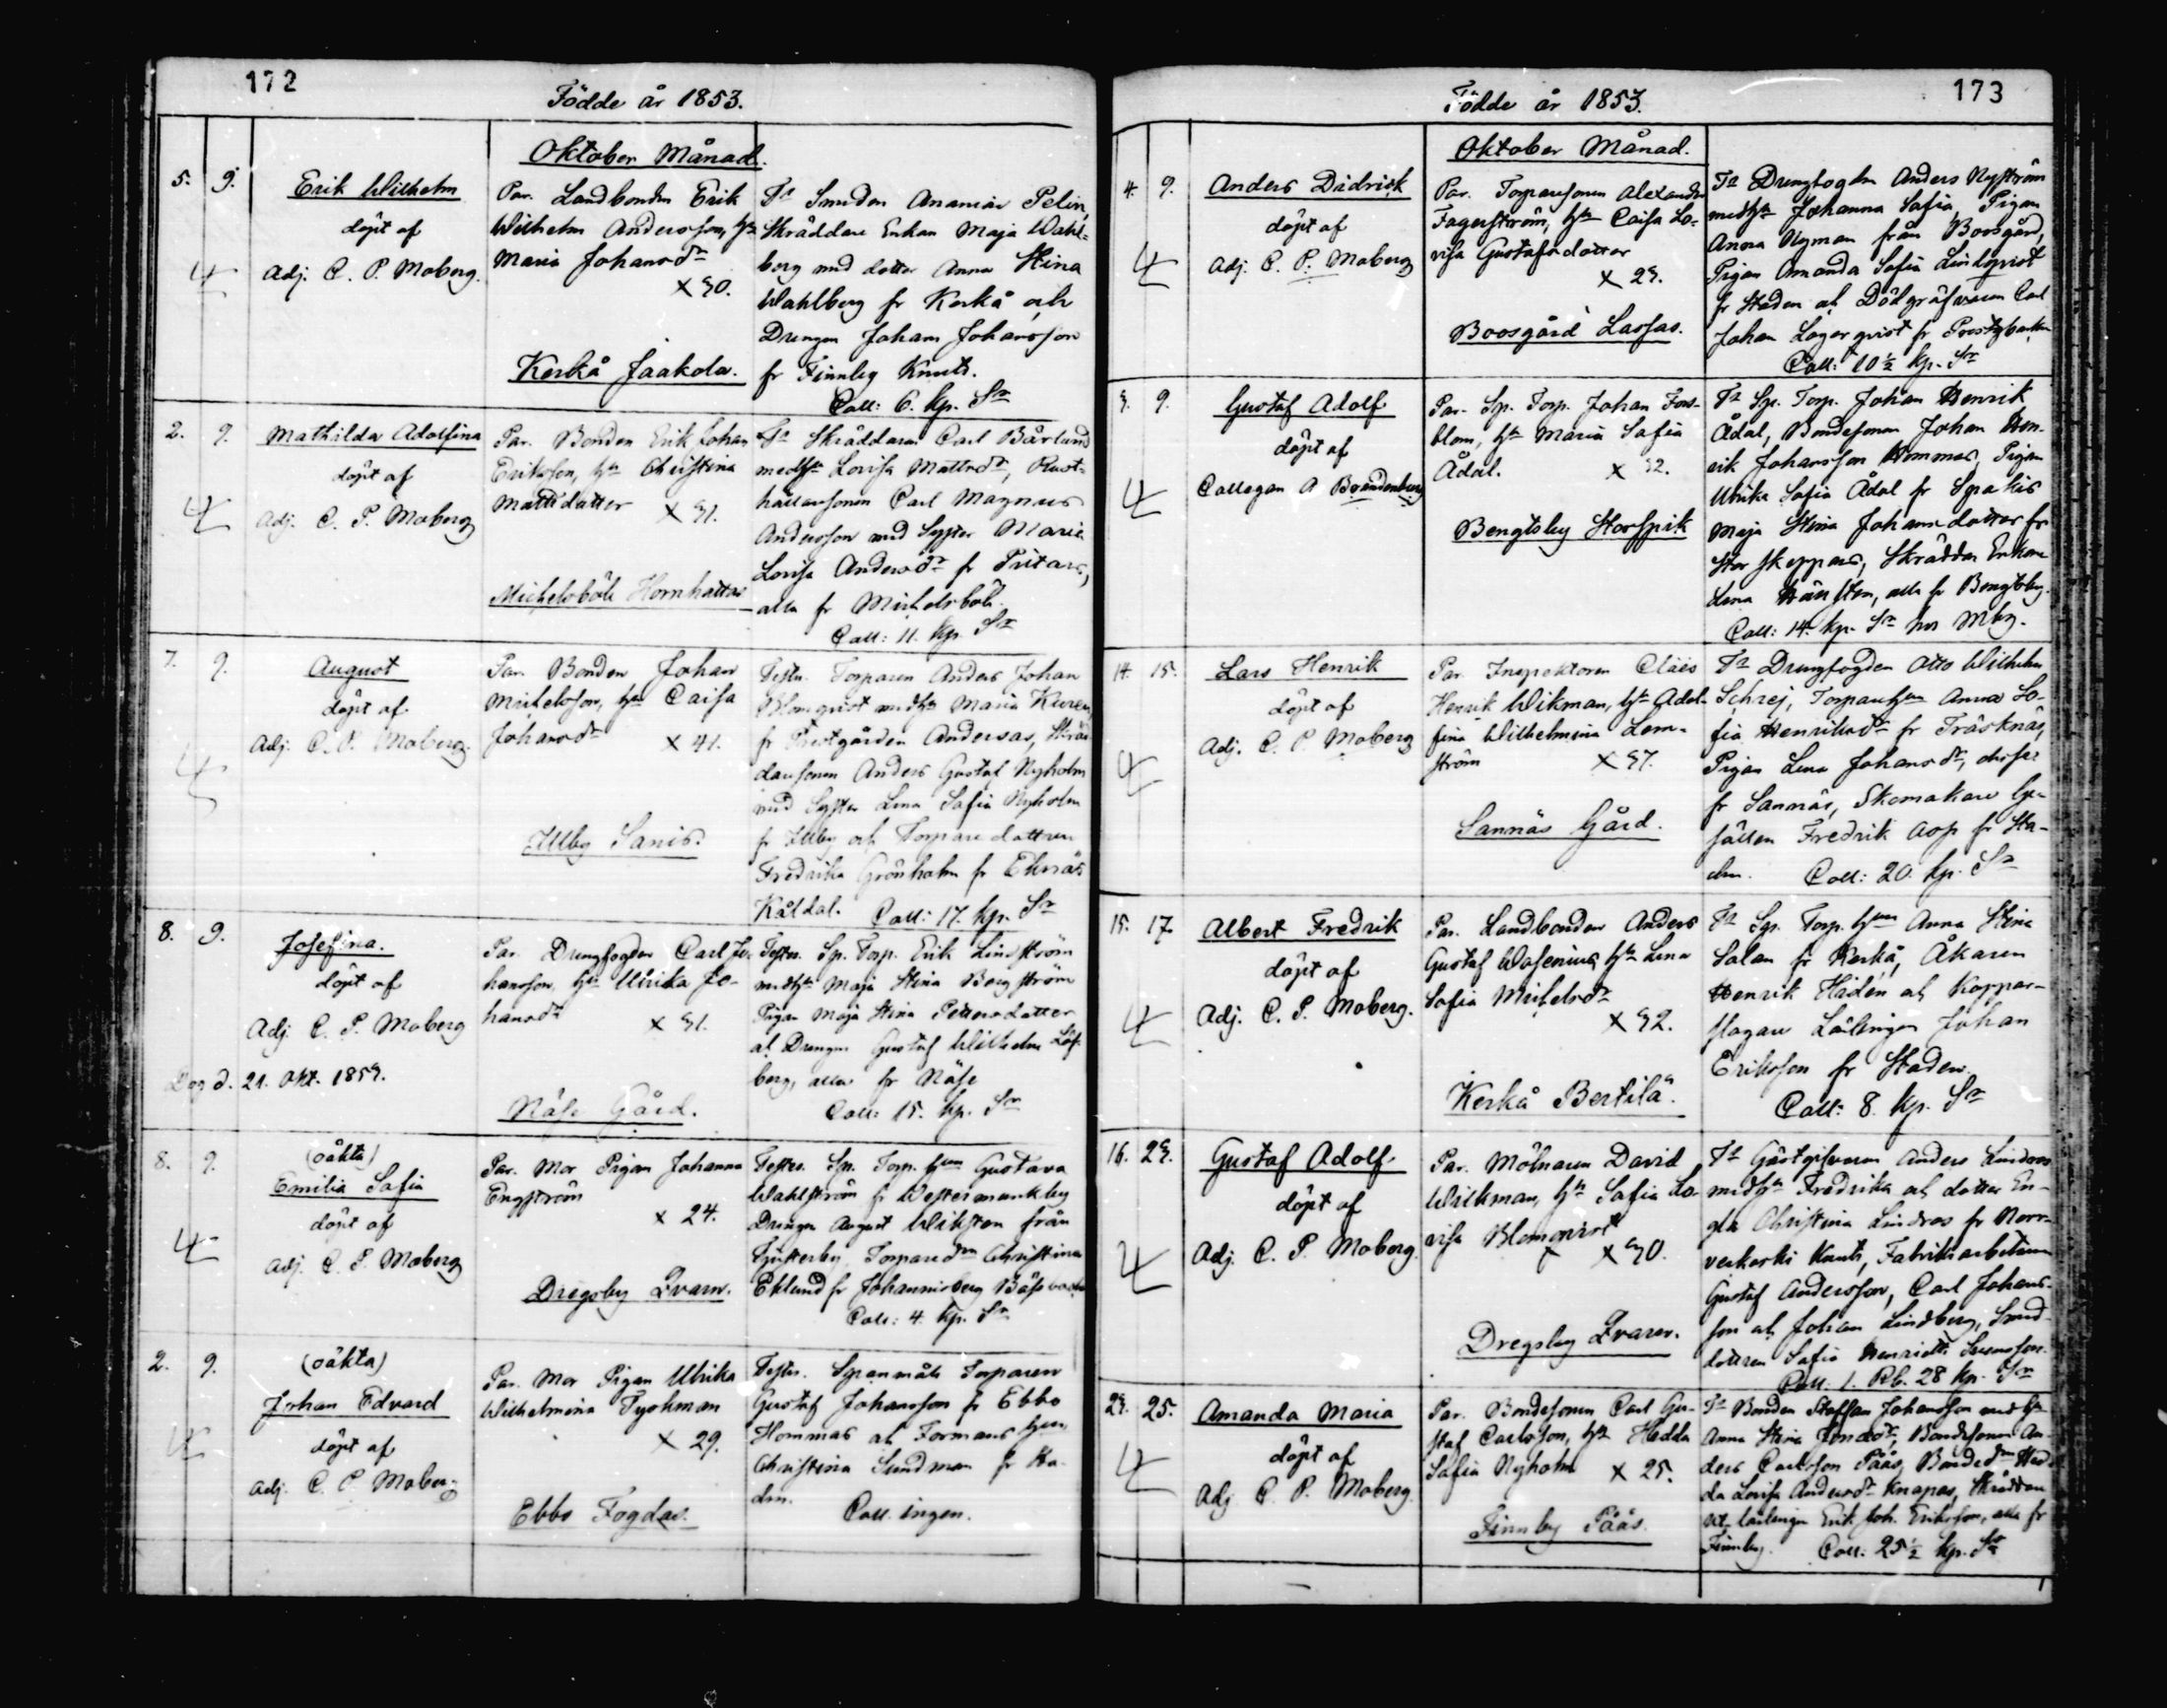 172
Födde år 1853.
Oktober Månad.
5. 9. Erik Wilhelm
döpt af
Adj. C. P. Moberg.
Par. Landbonden Erik
Wilhelm Andersson, hn
Maria Johansdr
x 30.
Kerkå Jaakola.
Tr Smeden Ananias Pelin,
Skräddare Enkan Maja Wahl-
berg med dotter Anna Stina
Wahlberg fr Kerkå och
Drengen Johan Johansson
fr Finnby Knuts.
Coll: 6. kp. Sr
2. 9. Mathilda Adolfina
döpt af
Adj. C. P. Moberg
Par. Bonden Erik Johan
Eriksson, hn Christina
Mattsdatter x 31.
Michelsböle Hornhattas
Tr Skräddaren Carl Bärlund
medhn Lovisa Mattsdr, Rust-
hållaresonen Carl Magnus
Andersson med Syster Maria
Lovisa Andersdr fr Pritars,
alla fr Michelsböle.
Coll: 11. kp. Sr
7. 9. August
döpt af
Adj. C. P. Moberg.
Par. Bonden Johan
Michelsson, hn Caisa
Johansdr x 41.
Illby Sanis.
Testes. Torparen Anders Johan
Blomqvist medhn Maria
fr Prestgården Andersas, Skräd-
daresonen Anders Gustaf Nyholm
med Syster Lena Sofia Nyholm
fr Illby och Torpare dottren
Fredrika Grönholm fr Eknäs
Kåldal. Coll: 17. kp. Sr
8. 9. Josefina.
döpt af
Adj. C. P. Moberg
Dog d. 21. Okt. 1853.
Par. Drengfogden Carl Jo-
hansson, hn Ulrika Jo-
hansdr x 31.
Näse Gård.
Testes. Sp. Torp. Erik Lindström
medhn Maja Stina Bergström
Pigan Maja Stina Pettersdotter
och Drengen Gustaf Wilhelm Löf-
berg, alla fr Näse
Coll: 15. kp. Sr
8. 9. (oäkta)
Emilia Sofia
döpt af
Adj. C. P. Moberg
Par. Mor Pigan Johanna
Engström
x 24.
Dregsby Qvarn.
Testes. Sp. Torp. hun Gustava
Wahlström fr Westermunkby
Drengen August Wiksten från
Tjusterby, Torparedrn Christina
Eklund fr Johannisberg
Coll: 4. kp. Sr
2. 9. (oäkta)
Johan Edvard
döpt af
Adj. C. P. Moberg
Par. Mor Pigan Ulrika
Wilhelmina Tyohman
x 29.
Ebbo Fogdas.
Testes. Spanmåls Torparen
Gustaf Johansson fr Ebbo
Hommas och Formans hun
Christina Sundman fr Sta-
den. Coll. ingen.
173
Födde år 1853.
Oktober Månad.
4. 9. Anders Didrick
döpt af
Adj. C. P. Moberg
Par. Torparesonen Alexander
Fagerström, hn Caisa Lo-
visa Gustafsdotter
x 23.
Boosgård Lassas.
Tr Drengfogden Anders Nyström
medhn Johanna Sofia, Pigan
Anna Nyman från Boosgård,
Pigan Amanda Sofia Lindqvist
fr Staden och Dödgräfvaren Carl
Johan Lagerqvist fr Prestgbacken
Coll: 10 ½ kp. Sr
3. 9. Gustaf Adolf
döpt af
Collegan A Brandenburg
Par. Sp. Torp. Johan Fors-
blom, hn Maria Sofia
Ådal. x 32.
Bengtsby Storspik
Tr Sp. Torp. Johan Henrik
Ådal, Bondesonen Johan Hen-
rik Johansson Hommas, Pigan
Ulrika Sofia Ådal fr Spakis
Maja Stina Johansdotter fr
Stor skeppars, Skräddar Enkan
Lena, alla fr Bengtsby.
Coll: 14. kp. Sr hos Mbg.
14. 15. Lars Henrik
döpt af
Adj. C. P. Moberg
Par. Inspektoren Claës
Henrik Wikman, hn Adol-
fina Wilhelmina Lem-
ström x 37.
Sannäs Gård.
Tr Drengfogden Otto Wilhelm
Schrej, Torparehun Anna So-
fia Henriksdr fr Träsknäs,
Pigan Lena Johansdr, dessa
fr Sannäs, Skomakare Ge-
sällen Fredrik Aop fr Sta-
den. Coll: 20. kp. Sr
15. 17. Albert Fredrik
döpt af
Adj. C. P. Moberg.
Par. Landbonden Anders
Gustaf Wasenius, hn Lena
Sofia Michelsdr
x 32.
Kerkå Bertilä.
Tr Sp. Torp. hun Anna Stina
Salan fr Kerkå, Åkaren
Henrik Hidén och Koppar-
slagare Lärlingen Johan
Eriksson fr Staden.
Coll: 8. kp. Sr
16. 23. Gustaf Adolf.
döpt af
Adj. C. P. Moberg.
Par. Mölnaren David
Wilkman, hn Sofia Lo-
visa Blomqvist
x 30.
Dregsby Qvarn.
Tr Gästgifvaren Anders Lindroos
medhn Fredrika och dotter En-
gla Christina Lindroos fr Norr-
veckoski Knuts, Fabriksarbetaren
Gustaf Andersson, Carl Johans-
son och Johan Lindberg, Smed-
dottren Sofia Henrietta Svensson.
Coll: 1. Rb. 28 kp. Sr
23. 25. Amanda Maria
döpt af
Adj C. P. Moberg.
Par. Bondesonen Carl Gu-
staf Carlsson, hn Hedda
Sofia Nyholm x 25.
Finnby Pääs.
Tr Bonden Staffan Johansson medhn
Anna Stina Jonasdr, Bondesonen An-
ders Carlsson Pääs, Bondedrn Hed-
da Lovisa Andersdr Knapas, Skräddare
lärlingen Erik Joh. Eriksson, alla fr
Finnby. Coll: 25 ½ kp. Sr